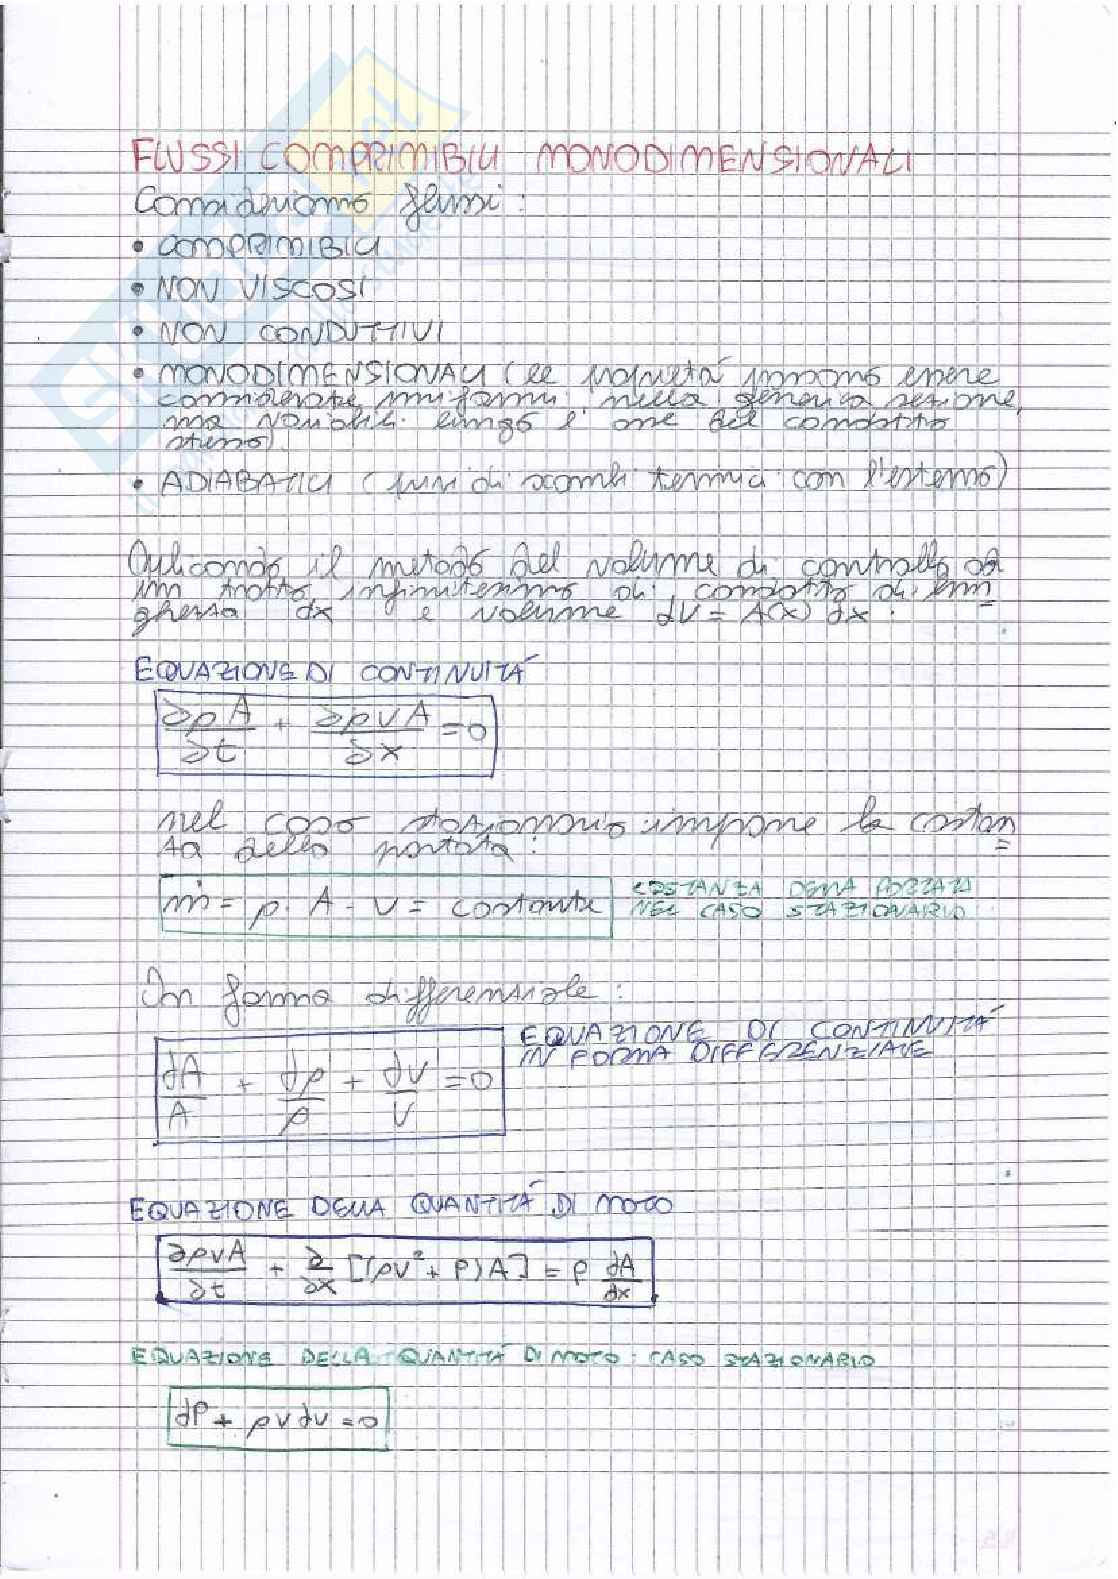 FLUSSI COMPRIMIBILI MONODIMENSIONALI
Consideriamo flussi:
• COMPRIMIBILI
• NON VISCOSI
• NON CONDUTTIVI
• MONODIMENSIONALI (le proprietá possono essere
considerate uniformi nella generica sezione,
ma variabili lungo l'asse del condotto
stesso)
• ADIABATICI (privi di scambi termici con l'esterno)
Applicando il metodo del volume di controllo ad
un tratto infinitesimo di condotto di lun=
ghezza dx e volume dV = A(x) dx:
EQUAZIONE DI CONTINUITÁ
∂ρA/∂t + ∂ρvA/∂x = 0
nel caso stazionario impone la costan=
za della portata:
ṁ = ρ · A · v = costante COSTANZA DELLA PORTATA
NEL CASO STAZIONARIO
In forma differenziale:
EQUAZIONE DI CONTINUITÁ
IN FORMA DIFFERENZIALE
dA/A + dρ/ρ + dv/v = 0
EQUAZIONE DELLA QUANTITÁ DI MOTO
∂ρvA/∂t + ∂/∂x [(ρv² + P)A] = P dA/dx
EQUAZIONE DELLA QUANTITÁ DI MOTO: CASO STAZIONARIO
dP + ρvdv = 0